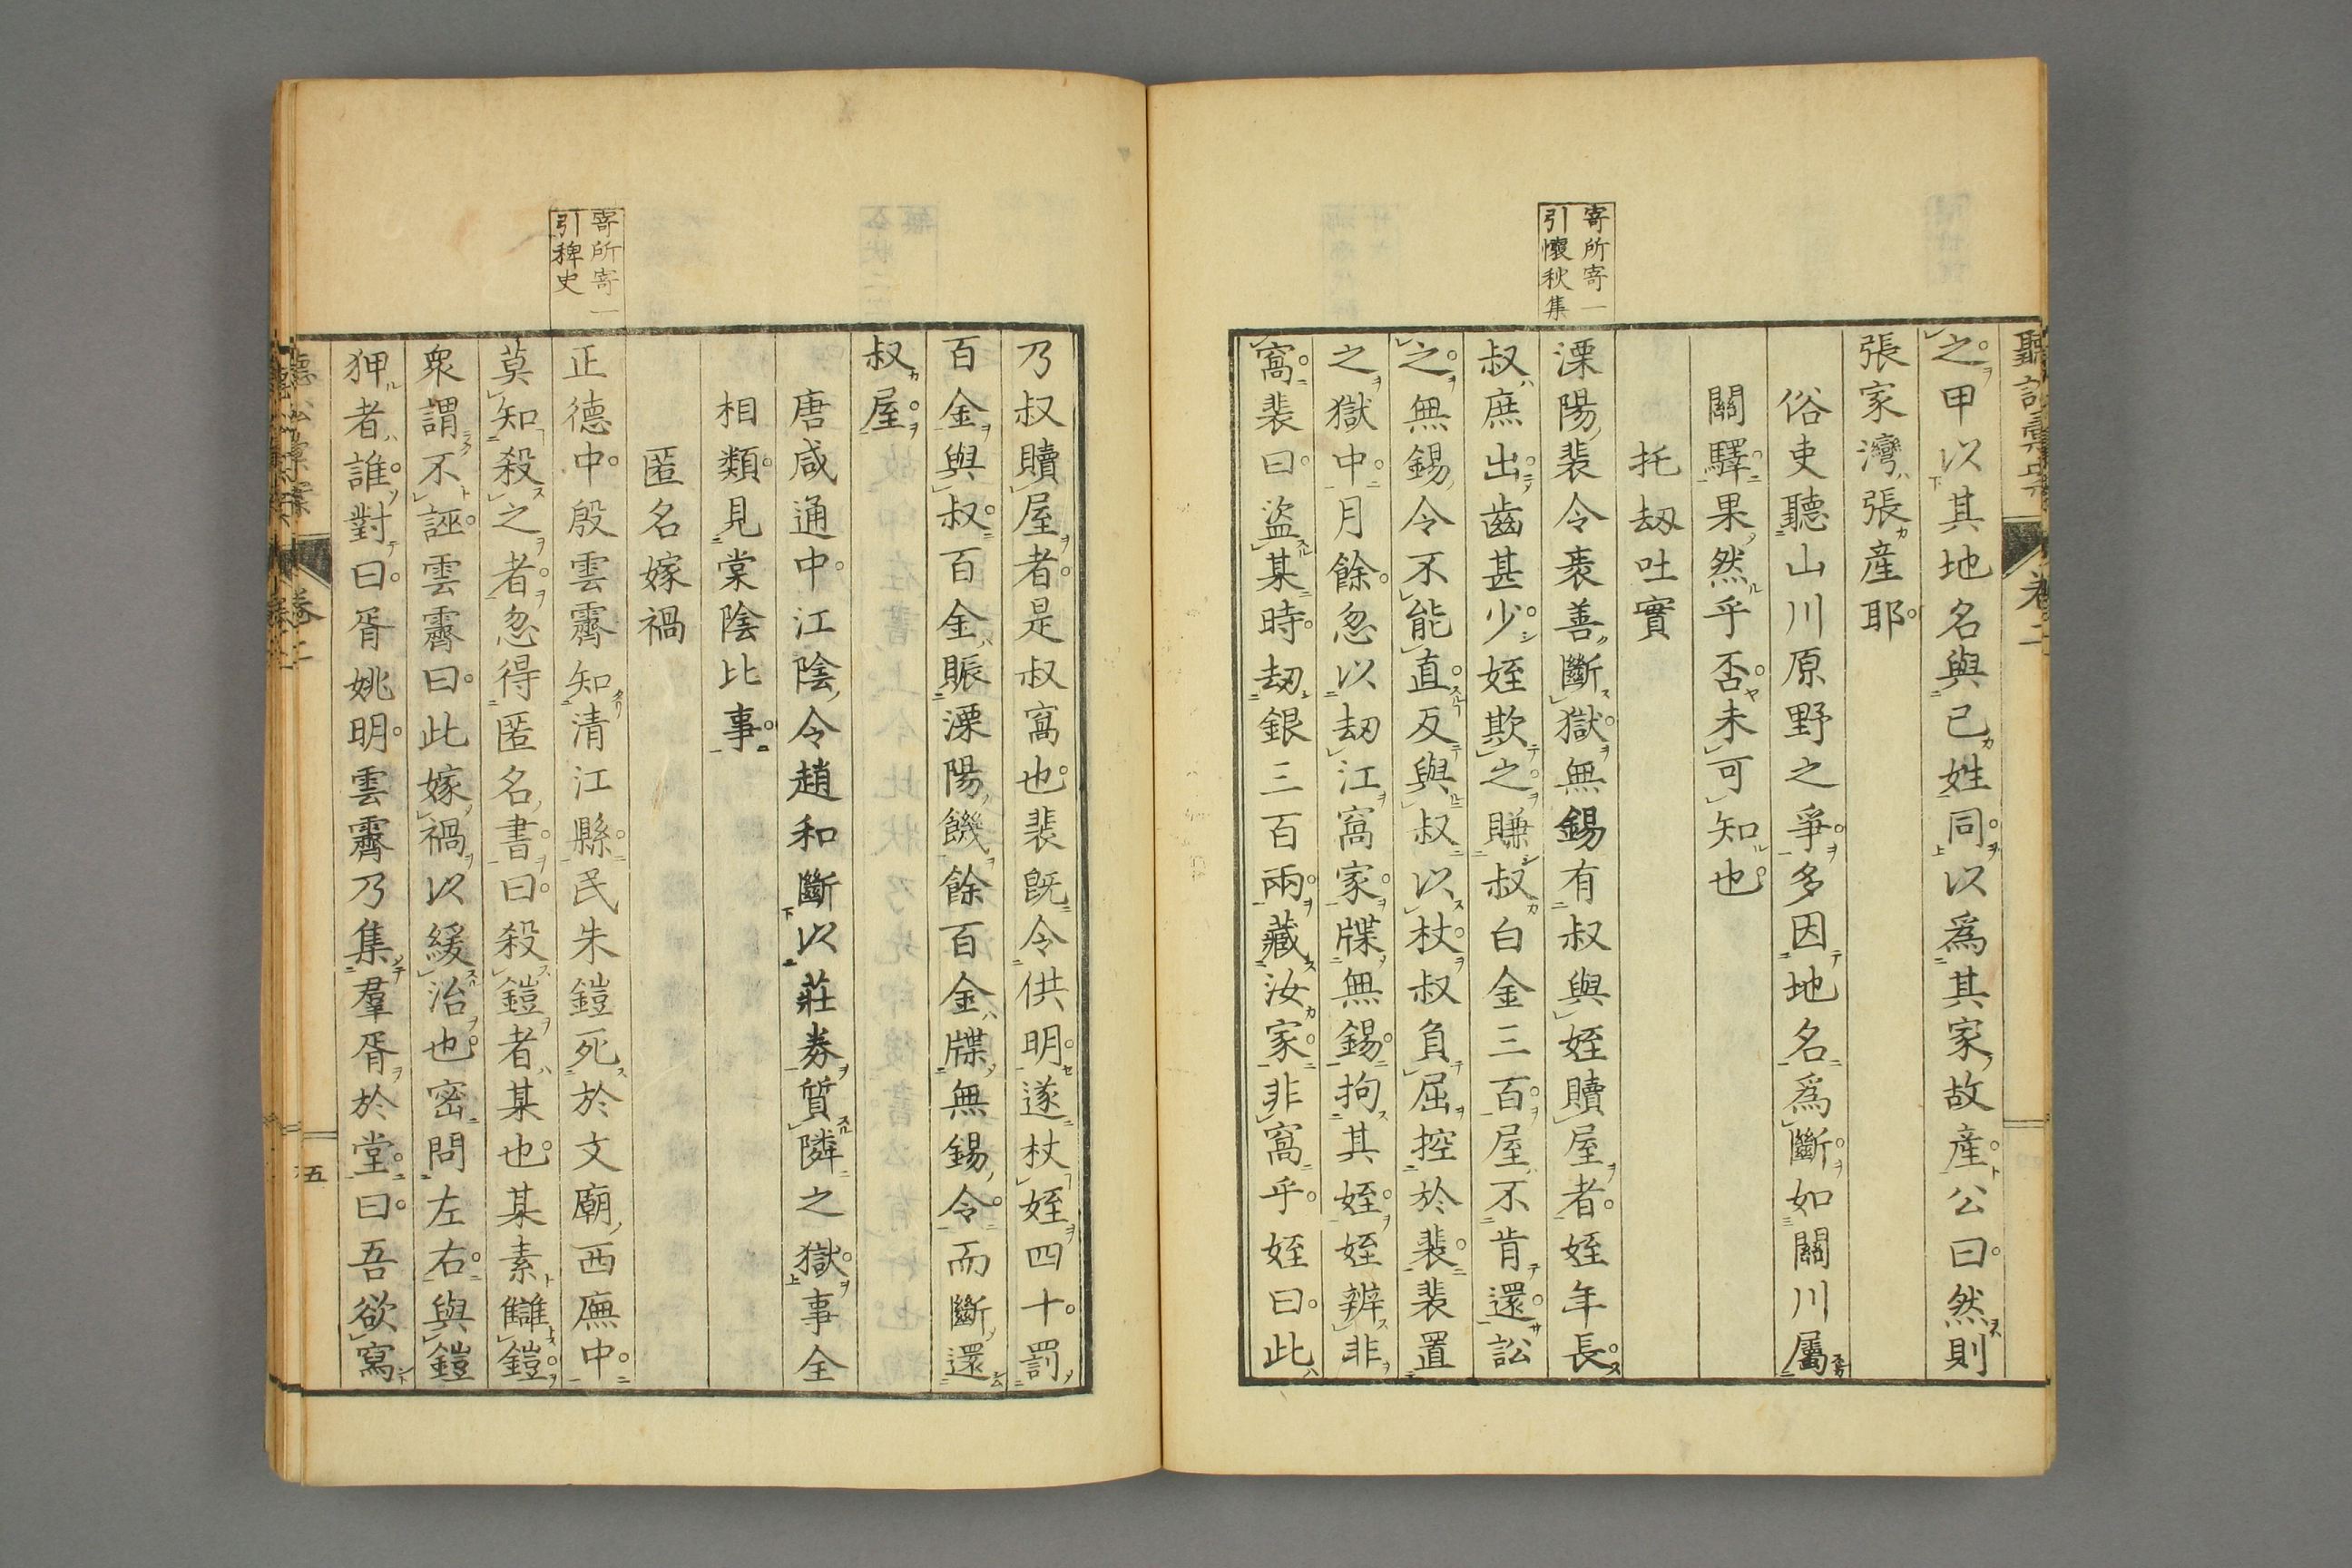 之甲以其地名與己姓同以爲其家故産公曰然則
張家灣張産耶
俗吏聽山川原野之爭多因地名爲斷如關川屬
關驛果然乎否未可知也
托刼吐實
寄所寄一
引懷秋集
溧陽裴令袠善斷獄無錫有叔與姪贖屋者姪年長
叔庶出齒甚少姪欺之賺叔白金三百屋不肯還訟
之無錫令不能直反與叔以杖叔負屈控於裴裴置
之獄中月餘忽以刼江窩家牒無錫拘其姪姪辨非
窩裴曰盜某時刼銀三百兩藏汝家非窩乎姪曰此
乃叔贖屋者是叔窩也裴旣令供明遂杖姪四十罰
百金與叔百金賑溧陽饑餘百金牒無錫令而斷還
叔屋
唐咸通中江陰令趙和斷以莊券質隣之獄事全
相類見棠陰比事
匿名嫁禍
寄所寄一
引稗史
正德中殷雲霽知清江縣民朱鎧死於文廟西廡中
莫知殺之者忽得匿名書曰殺鎧者某也某素讎鎧
衆謂不誣雲霽曰此嫁禍以緩治也密問左右與鎧
狎者誰對曰胥姚明雲霽乃集羣胥於堂曰吾欲寫
卷二
五